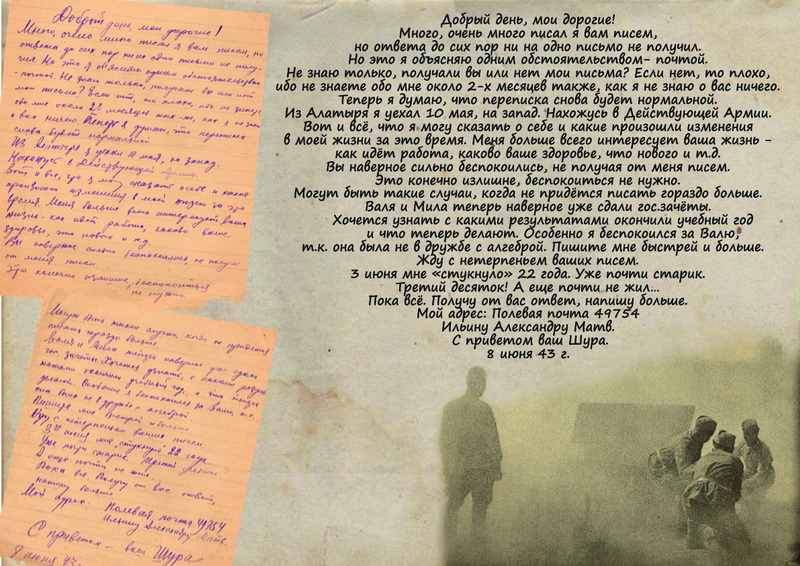 Добрый день, мои дорогие!
Много, очень много писал я вам, писем,
но ответа до сих пор ни на одно письмо не получил.
Но это я объясняю одним обстоятельством- почтой.
Не знаю только, получали вы или нет мои письма? Если нет, то плохо,
ибо не знаете обо мне около 2-х месяцев также, как я не знаю о вас ничего.
Теперь я думаю, что переписка снова будет нормальной.
Из Алатыря я уехал 10 мая, на запад. Нахожусь в Действующей Армии.
Вот и всё, что я могу сказать о себе и какие произошли изменения
в моей жизни за это время. Меня больше всего интересует ваша жизнь -
как идёт работа, каково ваше здоровье, что нового и т.д.
Вы наверное сильно беспокоились, не получая от меня писем.
Это конечно излишне, беспокоиться не нужно.
Могут быть такие случаи, когда не придётся писать гораздо больше.
Валя и Мила теперь наверное уже сдали гос.зачёты.
Хочется узнать с какими результатами окончили учебный год
и что теперь делают. Особенно я беспокоился за Валю,
т.к. она была не в дружбе с алгеброй. Пишите мне быстрей и больше.
Жду с нетерпеньем ваших писем.
3 июня мне «стукнуло» 22 года. Уже почти старик.
Третий десяток! А еще почти не жил...
Пока всё. Получу от вас ответ, напишу больше.
Мой адрес: Полевая почта 49754
Ильину Александру Матв.
С приветом ваш Шура.
8 июня 43 г.
Добрый день, мои дорогие!
Много, очень много писал я вам писем, но
ответа до сих пор ни на одно письмо не полу-
чил. Но это я объясняю одним обстоятельством
-почтой. Не знаю только, получали вы или нет
мои письма? Если нет, то плохо, ибо не знаете
обо мне около 2х месяцев так же, как я не знаю
о вас ничего. Теперь я думаю, что переписка
снова будет нормальной.
Из Алатыря я уехал 10 мая, на запад.
Нахожусь в Действующей Армии.
Вот и всё, что я могу сказать о себе и какие
произошли изменения в моей жизни за это
время. Меня больше всего интересует ваша
жизнь - как идёт работа, каково ваше
здоровье, что нового и т.д.
Вы наверное сильно беспокоились, не получая
от меня писем.
Это конечно излишне, беспокоиться
не нужно.
Могут быть такие случаи, когда не придётся
писать гораздо больше.
Валя и Мила теперь наверное уже сдали
гос. зачёты. Хочется узнать, с какими резуль
татами окончили учебный год, и что теперь
делают. Особенно я беспокоился за Валю, т.к.
она была не в дружбе с алгеброй.
Пишите мне быстрей и больше
Жду с нетерпеньем ваших писем.
3 июня мне „стукнуло" 22 года.
Уже почти старик. Третий десяток
А еще почти не жил...
Пока все. Получу от вас ответ,
напишу больше.
Мой адрес: Полевая почта 49754
Ильину Александру Матв.
С приветом - ваш Шура
8 июня 43г.